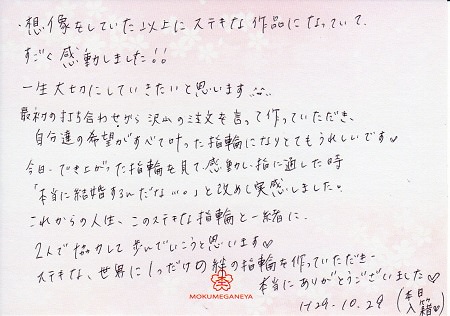 ・想像をしていた以上にステキな作品になっていて、
すごく感動しました!!
一生大切にしていきたいと思います
最初の打ち合わせから沢山の注文を言って作っていただき、
自分達の希望がすべて叶った指輪になりとてもうれしいです♡
今日、でき上がった指輪を見て、感動し、指に通した時
「本当に結婚するんだな…。」と改めて実感しました。
これからの人生、このステキな指輪と一緒に、
2人で協力して歩んでいこうと思います♡
ステキな、世界に1つだけの絆の指輪を作っていただき、
本当にありがとうございました♡
H29.10.29 (本日入籍)
MOKUMEGANEYA